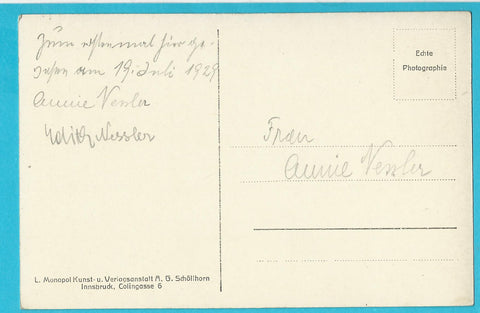 Zum erstenmal hier ge-
sehen am 19. Juli 1929
Annie Vessler
Edith Nessler
Echte
Photographie
Frau
Annie Vessler
L. Monopol Kunst- u. Verlagsanstalt A. G. Schöllhorn
Innsbruck, Colingasse 6